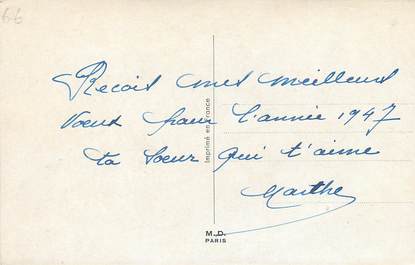 66
Reçois mes meilleurs
voeux pour l'année 1947
ta soeur qui t'aime
Marthe
Imprimé en France
M.D.
PARIS